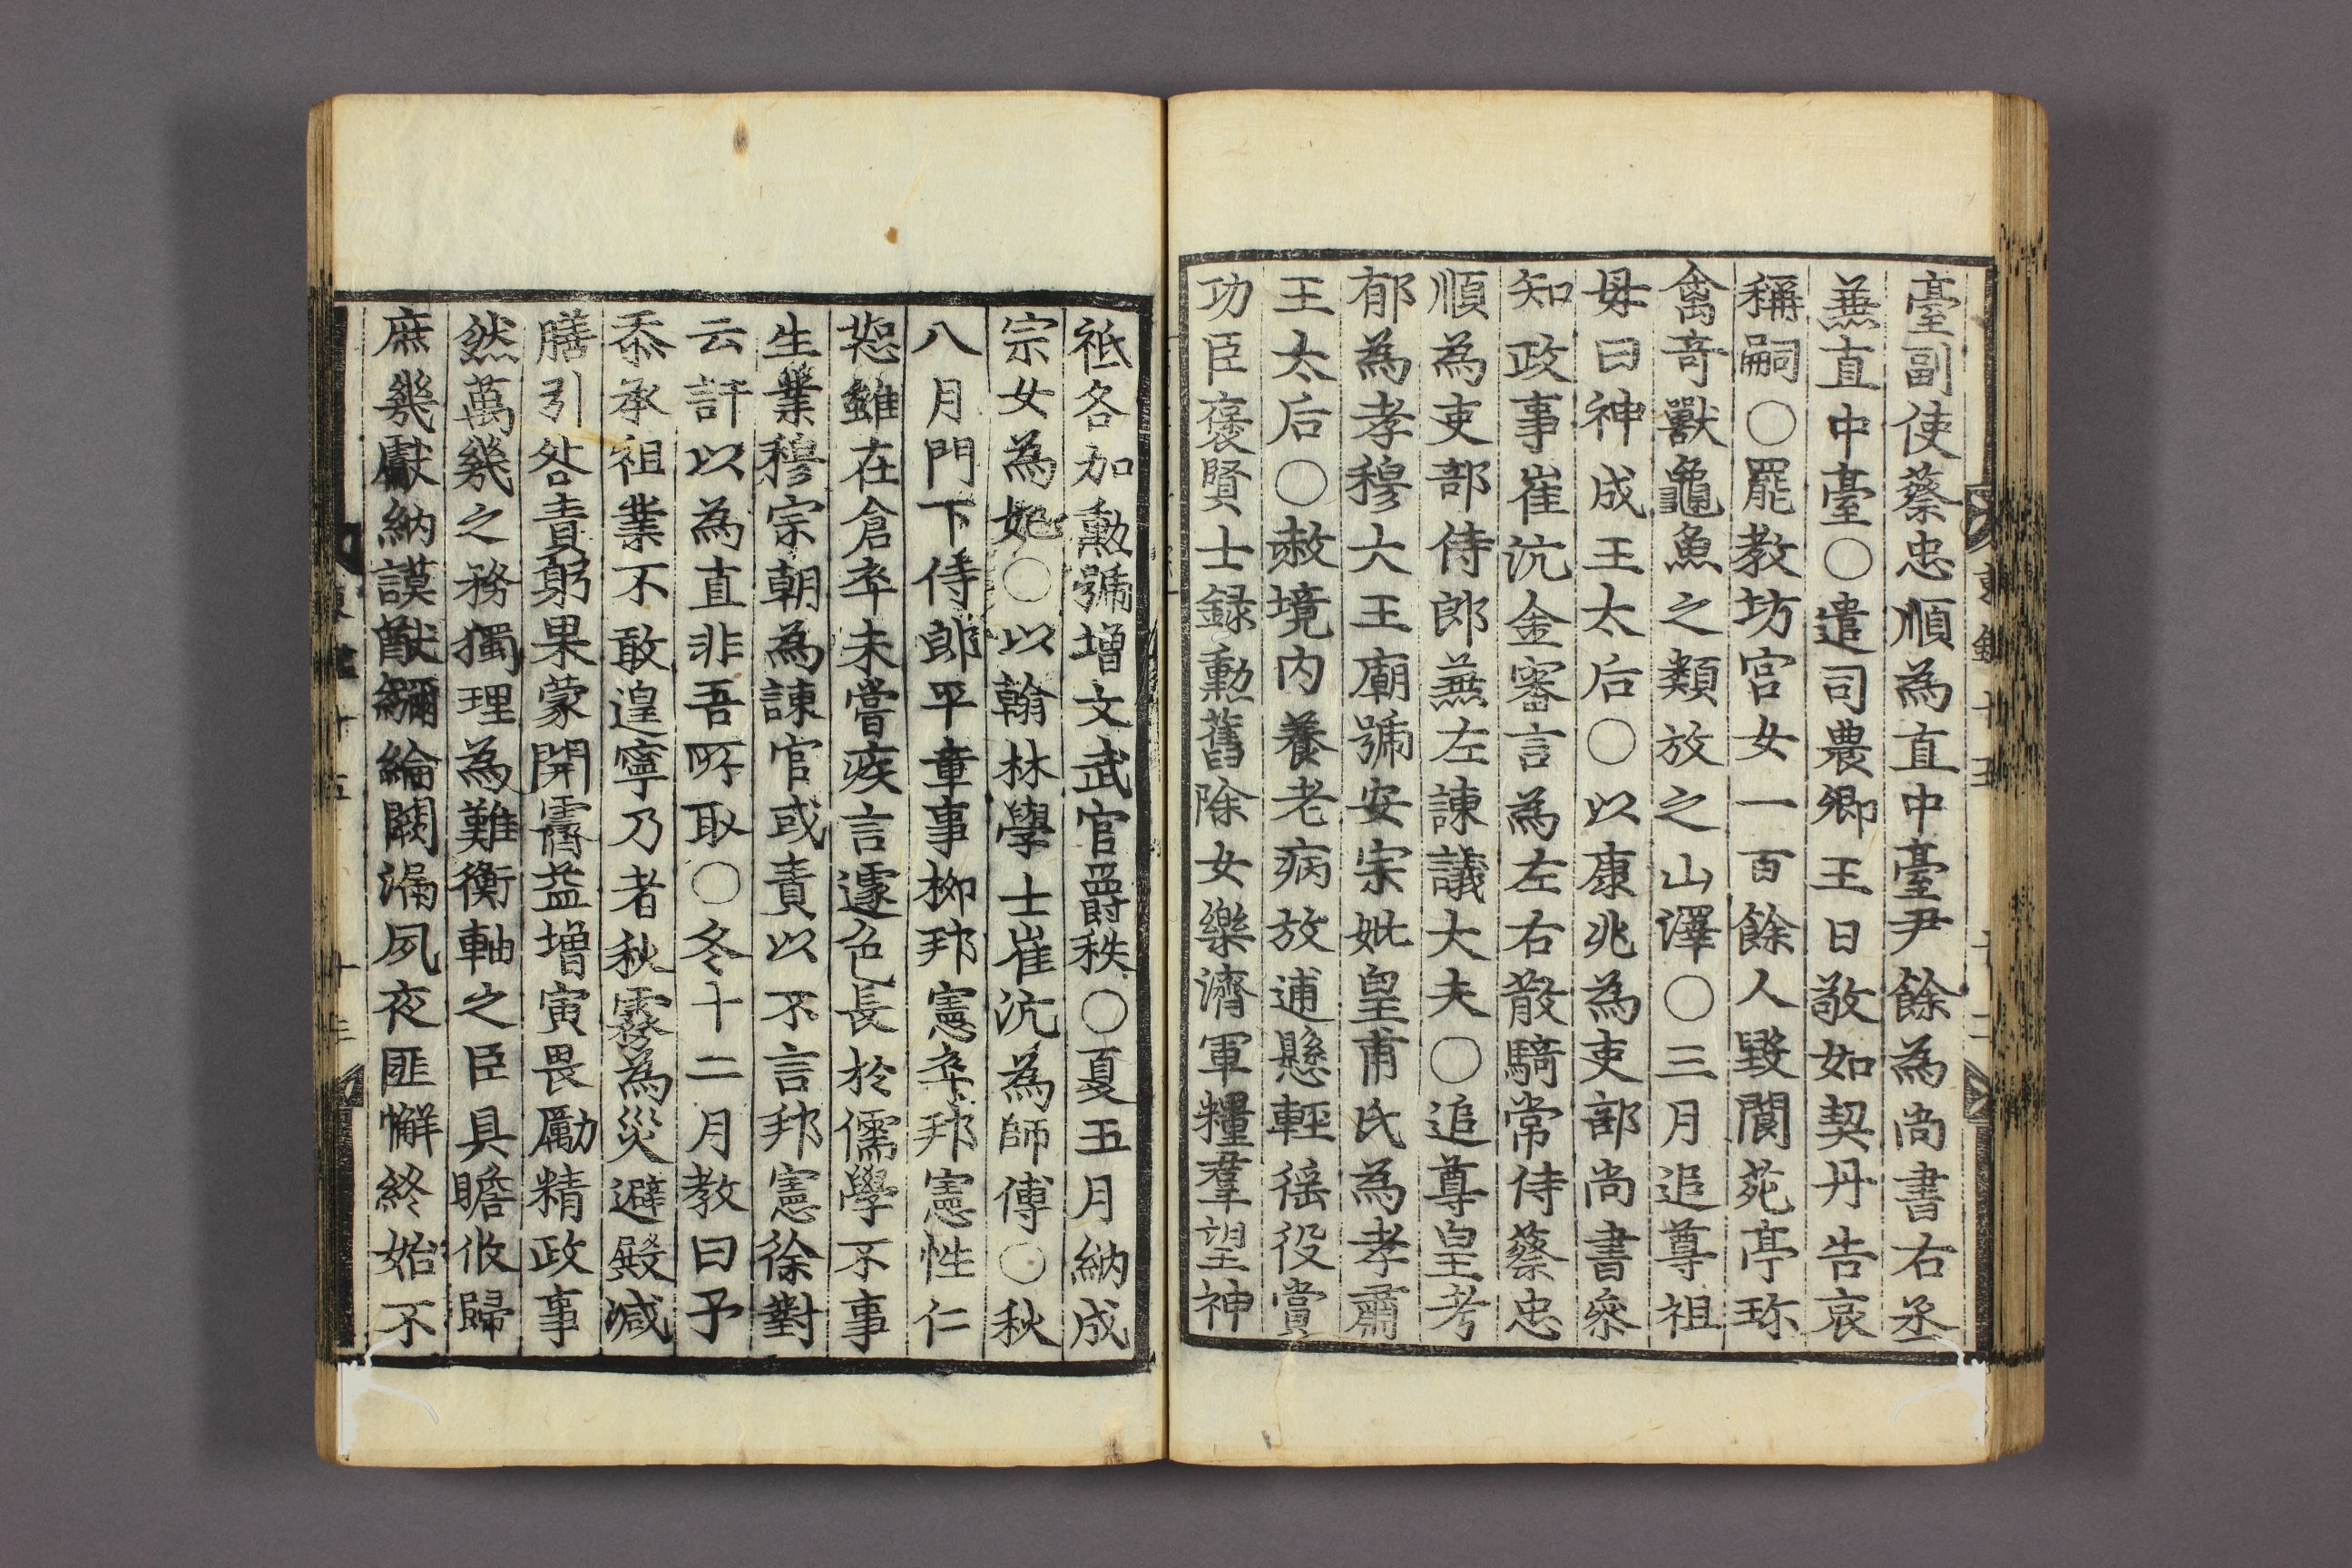 臺副使蔡忠順為直中臺尹餘為尚書右丞
兼直中臺○遣司農卿王日敬如契丹告哀
稱嗣○罷教坊宮女一百餘人毀閬苑亭珎
禽奇獸龜魚之類放之山澤○三月追尊祖
母曰神成王太后○以康兆為吏部尚書叅
知政事崔沆金審言為左右散騎常侍蔡忠
順為吏部侍郎兼左諫議大夫○追尊皇考
郁為孝穆大王廟號安宗妣皇甫氏為孝肅
王太后○赦境内養老病放逋懸輕徭役賞
功臣褒賢士録勲舊除女樂濟軍糧羣望神
祗各加勲號增文武官爵秩○夏五月納成
宗女為妃○以翰林學士崔沆為師傅○秋
八月門下侍郎平章事柳邦憲卒邦憲性仁
恕雖在倉卒未嘗疾言遽色長於儒學不事
生業穆宗朝為諫官或責以不言邦憲徐對
云訐以為直非吾所取○冬十二月教曰予
忝承祖業不敢遑寧乃者秋霧為災避殿减
膳引咎責躬果蒙開霽益增寅畏勵精政事
然萬幾之務獨理為難衡軸之臣具瞻攸歸
庶幾獻納謨猷彌綸闕漏夙夜匪懈終始不